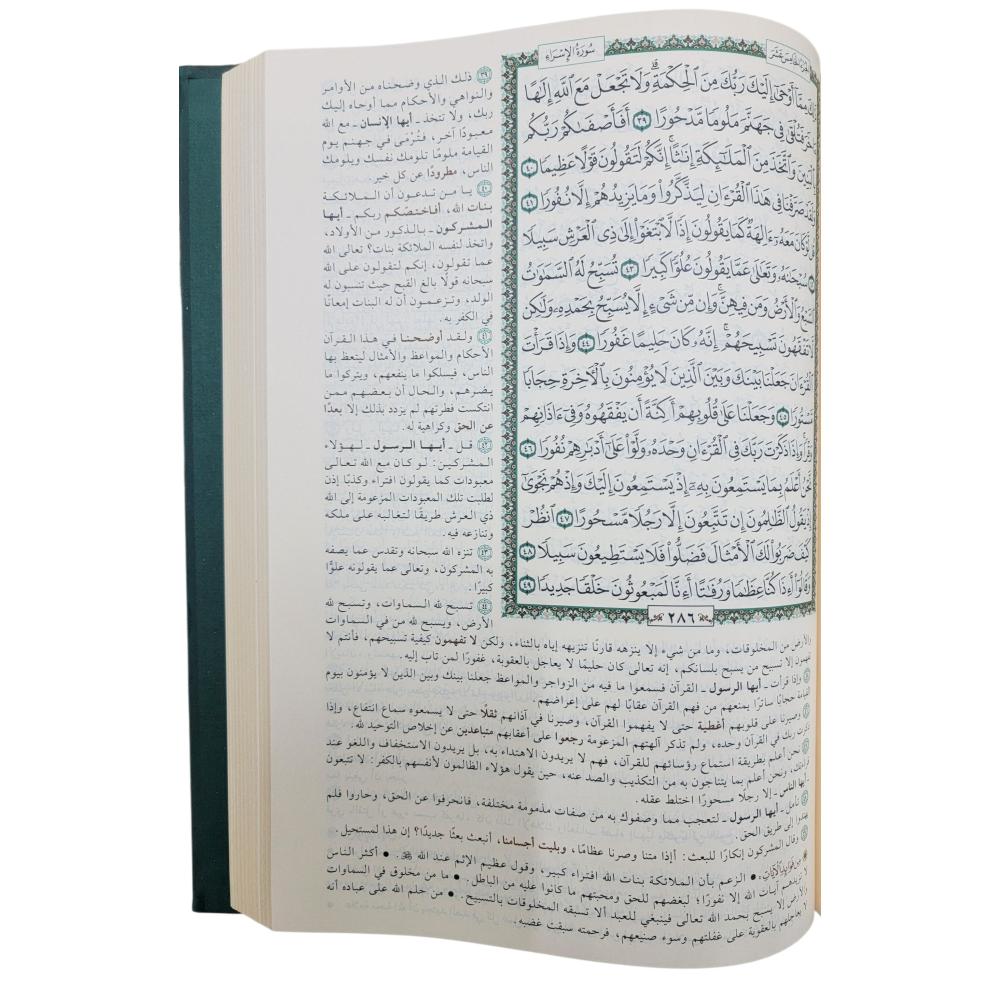 سُورَةُ الإِسْرَاءِ
مِمَّآ أَوْحَىٰٓ إِلَيْكَ رَبُّكَ مِنَ ٱلْحِكْمَةِ ۗ وَلَا تَجْعَلْ مَعَ ٱللَّهِ إِلَٰهًا
فَتُلْقَىٰ فِى جَهَنَّمَ مَلُومًا مَّدْحُورًا ٣٩ أَفَأَصْفَىٰكُمْ رَبُّكُم
وَٱتَّخَذَ مِنَ ٱلْمَلَٰٓئِكَةِ إِنَٰثًا ۚ إِنَّكُمْ لَتَقُولُونَ قَوْلًا عَظِيمًا ٤٠
صَرَّفْنَا فِى هَٰذَا ٱلْقُرْءَانِ لِيَذَّكَّرُوا۟ وَمَا يَزِيدُهُمْ إِلَّا نُفُورًا ٤١
لَّوْ كَانَ مَعَهُۥٓ ءَالِهَةٌ كَمَا يَقُولُونَ إِذًا لَّٱبْتَغَوْا۟ إِلَىٰ ذِى ٱلْعَرْشِ سَبِيلًا
سُبْحَٰنَهُۥ وَتَعَٰلَىٰ عَمَّا يَقُولُونَ عُلُوًّا كَبِيرًا ٤٣ تُسَبِّحُ لَهُ ٱلسَّمَٰوَٰتُ
وَٱلْأَرْضُ وَمَن فِيهِنَّ ۚ وَإِن مِّن شَىْءٍ إِلَّا يُسَبِّحُ بِحَمْدِهِۦ وَلَٰكِن
تَفْقَهُونَ تَسْبِيحَهُمْ ۗ إِنَّهُۥ كَانَ حَلِيمًا غَفُورًا ٤٤ وَإِذَا قَرَأْتَ
ٱلْقُرْءَانَ جَعَلْنَا بَيْنَكَ وَبَيْنَ ٱلَّذِينَ لَا يُؤْمِنُونَ بِٱلْءَاخِرَةِ حِجَابًا
مَّسْتُورًا ٤٥ وَجَعَلْنَا عَلَىٰ قُلُوبِهِمْ أَكِنَّةً أَن يَفْقَهُوهُ وَفِىٓ ءَاذَانِهِمْ
وَإِذَا ذَكَرْتَ رَبَّكَ فِى ٱلْقُرْءَانِ وَحْدَهُۥ وَلَّوْا۟ عَلَىٰٓ أَدْبَٰرِهِمْ نُفُورًا ٤٦
نَّحْنُ أَعْلَمُ بِمَا يَسْتَمِعُونَ بِهِۦٓ إِذْ يَسْتَمِعُونَ إِلَيْكَ وَإِذْ هُمْ نَجْوَىٰٓ
إِذْ يَقُولُ ٱلظَّٰلِمُونَ إِن تَتَّبِعُونَ إِلَّا رَجُلًا مَّسْحُورًا ٤٧ ٱنظُرْ
كَيْفَ ضَرَبُوا۟ لَكَ ٱلْأَمْثَالَ فَضَلُّوا۟ فَلَا يَسْتَطِيعُونَ سَبِيلًا ٤٨
وَقَالُوٓا۟ أَءِذَا كُنَّا عِظَٰمًا وَرُفَٰتًا أَءِنَّا لَمَبْعُوثُونَ خَلْقًا جَدِيدًا ٤٩
٢٨٦
٣٩ ذلك الذي وضحناه من الأوامر
والنواهي والأحكام مما أوحاه إليك
ربك، ولا تتخذ ـ أيها الإنسان ـ مع الله
معبودًا آخر، فتُرْمَى في جهنم يوم
القيامة ملومًا تلومك نفسك ويلومك
الناس، مطرودًا عن كل خير.
٤٠ يا من تدعون أن الملائكة
بنات الله، أفاختصّكم ربكم ـ أيها
المشركون ـ بالذكور من الأولاد،
واتخذ لنفسه الملائكة بنات؟ تعالى الله
عما تقولون، إنكم لتقولون على الله
سبحانه قولًا بالغ القبح حيث تنسبون له
الولد، وتزعمون أن له البنات إمعانًا
في الكفر به.
٤١ ولقد أوضحنا في هذا القرآن
الأحكام والمواعظ والأمثال ليتعظ بها
الناس، فيسلكوا ما ينفعهم، ويتركوا ما
يضرهم، والحال أن بعضهم ممن
انتكست فطرتهم لم يزدد بذلك إلا بعدًا
عن الحق وكراهية له.
٤٢ قل ـ أيها الرسول ـ لهؤلاء
المشركين: لو كان مع الله تعالى
معبودات كما يقولون افتراء وكذبًا إذن
لطلبت تلك المعبودات المزعومة إلى الله
ذي العرش طريقًا لتغالبه على ملكه
وتنازعه فيه.
٤٣ تنزه الله سبحانه وتقدس عما يصفه
به المشركون، وتعالى عما يقولونه علوًّا
كبيرًا.
٤٤ تسبح لله السماوات، وتسبح لله
الأرض، ويسبح لله من في السماوات
والأرض من المخلوقات، وما من شيء إلا ينزهه قارنًا تنزيهه إياه بالثناء، ولكن لا تفهمون كيفية تسبيحهم، فأنتم لا
تفهمون إلا تسبيح من يسبح بلسانكم، إنه تعالى كان حليمًا لا يعاجل بالعقوبة، غفورًا لمن تاب إليه.
وإذا قرأت ـ أيها الرسول ـ القرآن فسمعوا ما فيه من الزواجر والمواعظ جعلنا بينك وبين الذين لا يؤمنون بيوم
القيامة حجابًا ساترًا يمنعهم من فهم القرآن عقابًا لهم على إعراضهم.
وصيرنا على قلوبهم أغطية حتى لا يفهموا القرآن، وصيرنا في آذانهم ثقلًا حتى لا يسمعوه سماع انتفاع، وإذا
ذكرت ربك في القرآن وحده، ولم تذكر آلهتهم المزعومة رجعوا على أعقابهم متباعدين عن إخلاص التوحيد لله.
نحن أعلم بطريقة استماع رؤسائهم للقرآن، فهم لا يريدون الاهتداء به، بل يريدون الاستخفاف واللغو عند
قراءتك، ونحن أعلم بما يتناجون به من التكذيب والصد عنه، حين يقول هؤلاء الظالمون لأنفسهم بالكفر: لا تتبعون
ـ أيها الناس ـ إلا رجلًا مسحورًا اختلط عقله.
تأمل ـ أيها الرسول ـ لتعجب مما وصفوك به من صفات مذمومة مختلفة، فانحرفوا عن الحق، وحاروا فلم
يهتدوا إلى طريق الحق.
وقال المشركون إنكارًا للبعث: أإذا متنا وصرنا عظامًا، وبليت أجسامنا، أنبعث بعثًا جديدًا؟ إن هذا لمستحيل.
من فوائد الآيات • الزعم بأن الملائكة بنات الله افتراء كبير، وقول عظيم الإثم عند الله ﷻ. • أكثر الناس
لا تزيدهم آيات الله إلا نفورًا؛ لبغضهم للحق ومحبتهم ما كانوا عليه من الباطل. • ما من مخلوق في السماوات
والأرض إلا يسبح بحمد الله تعالى فينبغي للعبد ألا تسبقه المخلوقات بالتسبيح. • من حلم الله على عباده أنه
لا يعاجلهم بالعقوبة على غفلتهم وسوء صنيعهم، فرحمته سبقت غضبه.